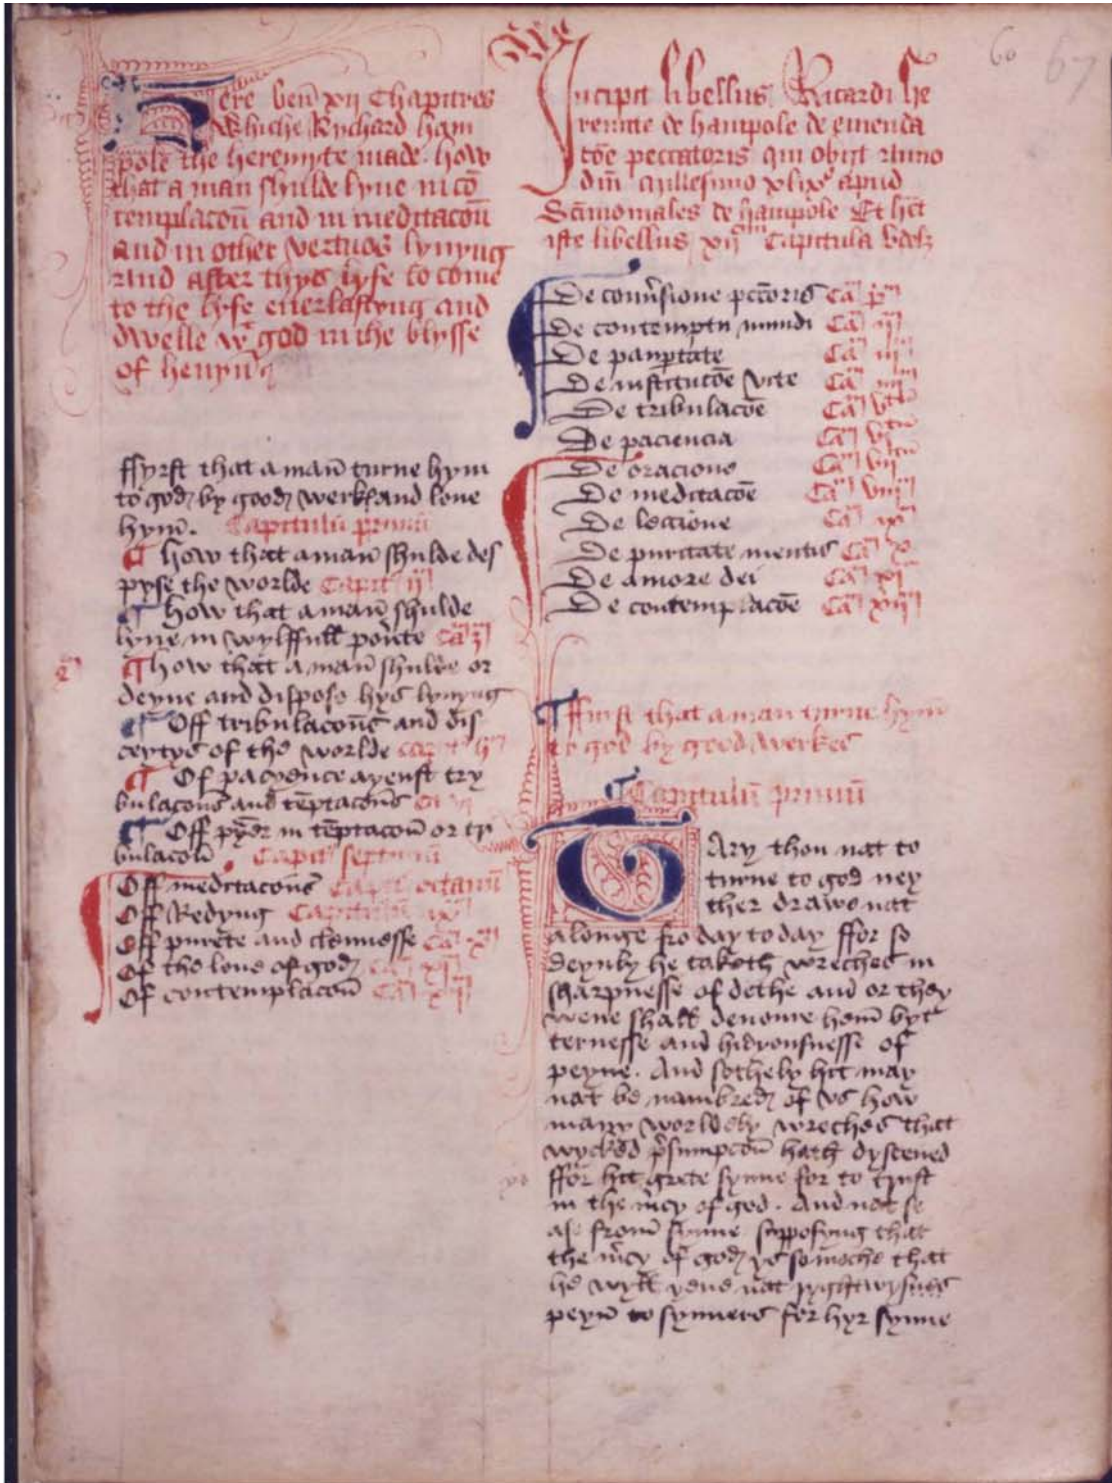 60 67
Here ben̄ xij Chapitres
Whiche Rychard ham
pole the heremyte made. how
that a man shulde lyue in cō
templacoū and in meditacoū
and in other vertuos lyuyng
and after thys lyfe to come
to the lyfe euerlastyng and
dwelle wt god in the blysse
of heuyn̄
ffyrst that a man̄ turne hym
to god by good werkes and loue
hym̄. Capitulū primū
¶ how that a man̄ shulde des
pyse the worlde Capit ij
¶ how that a man̄ shulde
lyue in wylffull pou̕te Cam̄ 3
¶ how that a man̄ shulde or
deyne and dispose hys lyuyng
¶ Off tribulacoūs and dis
ceytys of the worlde
¶ Of pacyence ayenst try
bulacoūs and tēptacoūs Ca vj
¶ Off pray̕er in tēptacoū or tri
bulacoū. Capit septimū
Off meditacoūs Capit octauū
Off Redyng Capitulū ix
Off purete and clennesse Ca x
Of the loue of god Ca xi
Of contemplacoū Ca xij
Incipit libellus Ricardi he
remite de hampole de emenda
cōe peccatoris qui obijt Anno
dn̄i Millesimo xlix apud
Sc̄imoniales de hampole Et hēt
iste libellus xij Capitula
De conu̕sione pctōris Cam̄ pm̄
De contemptu mundi Cam̄ ij
De paup̱tate Cam̄ iij
De institucōe vite Cam̄ iiij
De tribulacōe Cam̄ vtū
De paciencia Cam̄ vi
De oracione Cam̄ vij
De meditacōe Cam̄ viij
De leccione Cam̄ ix
De puritate mentis Cam̄ x
De amore dei Cam̄ xi
De contemplacōe Cam̄ xij
¶ ffirst that a man turne hym
to god by good werkes
¶ Capitulū primū
TAry thou nat to
turne to god ney
ther drawe nat
alonge fro day to day ffor so
deynly he taketh wreches in
sharpnesse of dethe and or they
wene shall deuoure hem̄ byt
ternesse and hidyousnesse of
peyne. And sothely hit may
nat be nambred of vs how
many worldely wreches that
wycked p̕sumpcoū hath dysceued
ffor hit grete synne for to trust
in the m̕cy of god. And nat se
ase from̄ synne supposyng that
the m̕cy of god ys so moche that
he wyll yeue nat ryghtwysnes
peyn̄ to synners for hyr synne